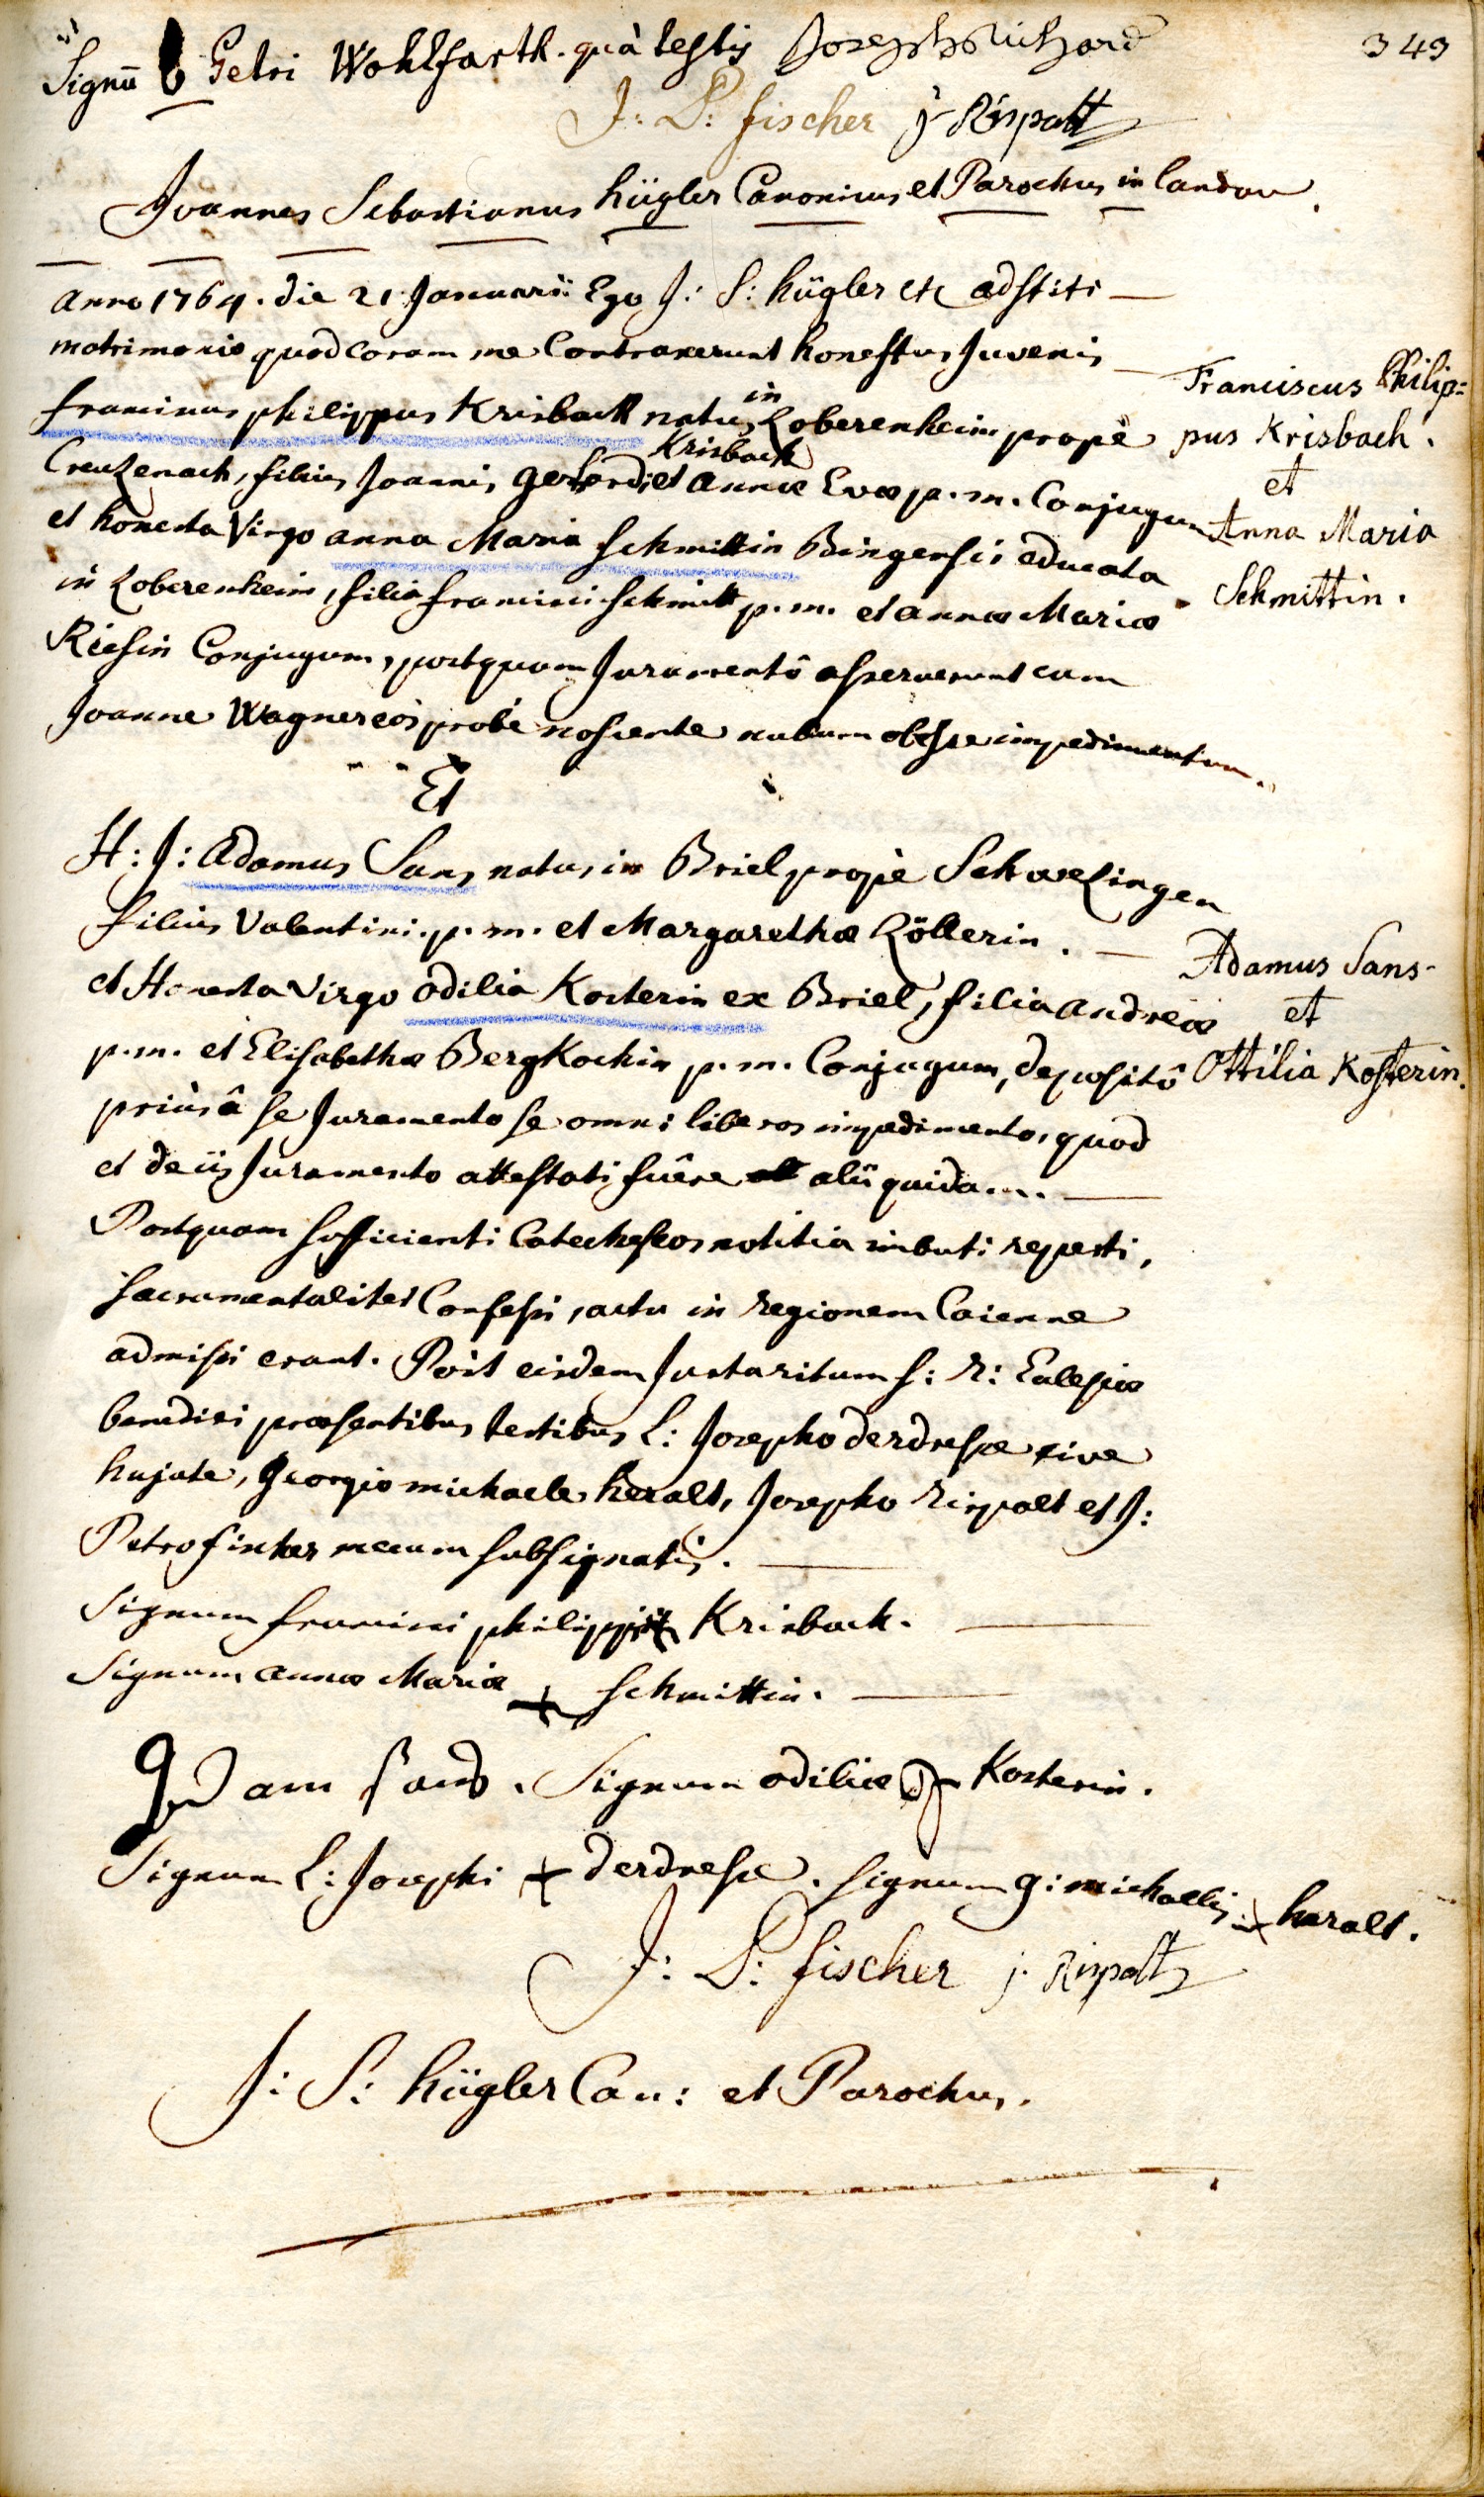 343
Signū Petri Wohlfarth. quà testis Joseph Richard
J: P: fischer j Rispalt
Joannes Sebastianus hügler Canonicus et Parochus in landau.
anno 1764. die 21 Januarii Ego J: S: hügler etc adstiti
matrimonio quod coram me Contraxerunt honestus Juvenis
franciscus philippus Krisbach natus in Loberenheim propè
Creuzenach, filius Joannis gerhardi Krisbach et annæ Evæ p. m. Conjugum
et honesta Virgo anna Maria schmittin Bingensis educata
in Loberenheim, filia francisci schmitt p. m. et annæ Mariæ
Riesin Conjugum, postquam Juramentô asseruerunt cum
Joanne Wagner eos probè noscente nullum obesse impedimentum.
Franciscus Philip=
pus Krisbach.
et
Anna Maria
Schmittin.
Et
H: J: Adamus Sans natus in Briel propè Schwezingen
filius Valentini p. m. et Margarethæ Zöllerin.
et Honesta Virgo odilia Kosterin ex Briel, filia andreæ
p. m. et Elisabethæ BergKochin p. m. Conjugum, depositô
priùs â se Juramento se omni liberos impedimento, quod
et de iis Juramento attestati fuêre alii quidam.
Adamus Sans
et
Ottilia Kosterin.
Postquam sufficienti Catecheseos notitia imbuti reperti,
sacramentaliter Confessi, actu in regionem Caienne
admissi erant. Post eisdem Juxta ritum s: r: Ecclesiæ
benedixi præsentibus testibus L: Josepho derdresse cive
hujate, georgio michaele heralt, Josepho rispalt et J:
Petro fischer mecum subsignatis.
Signum francisci philippi Krisbach.
Signum annæ Mariæ + schmittin.
adam sans. Signum odiliæ Kosterin.
Signum L: Josephi + derdresse. signum g: michaelis + heralt.
J: P: fischer j. Rispalt
J: S: hügler Can: et Parochus.